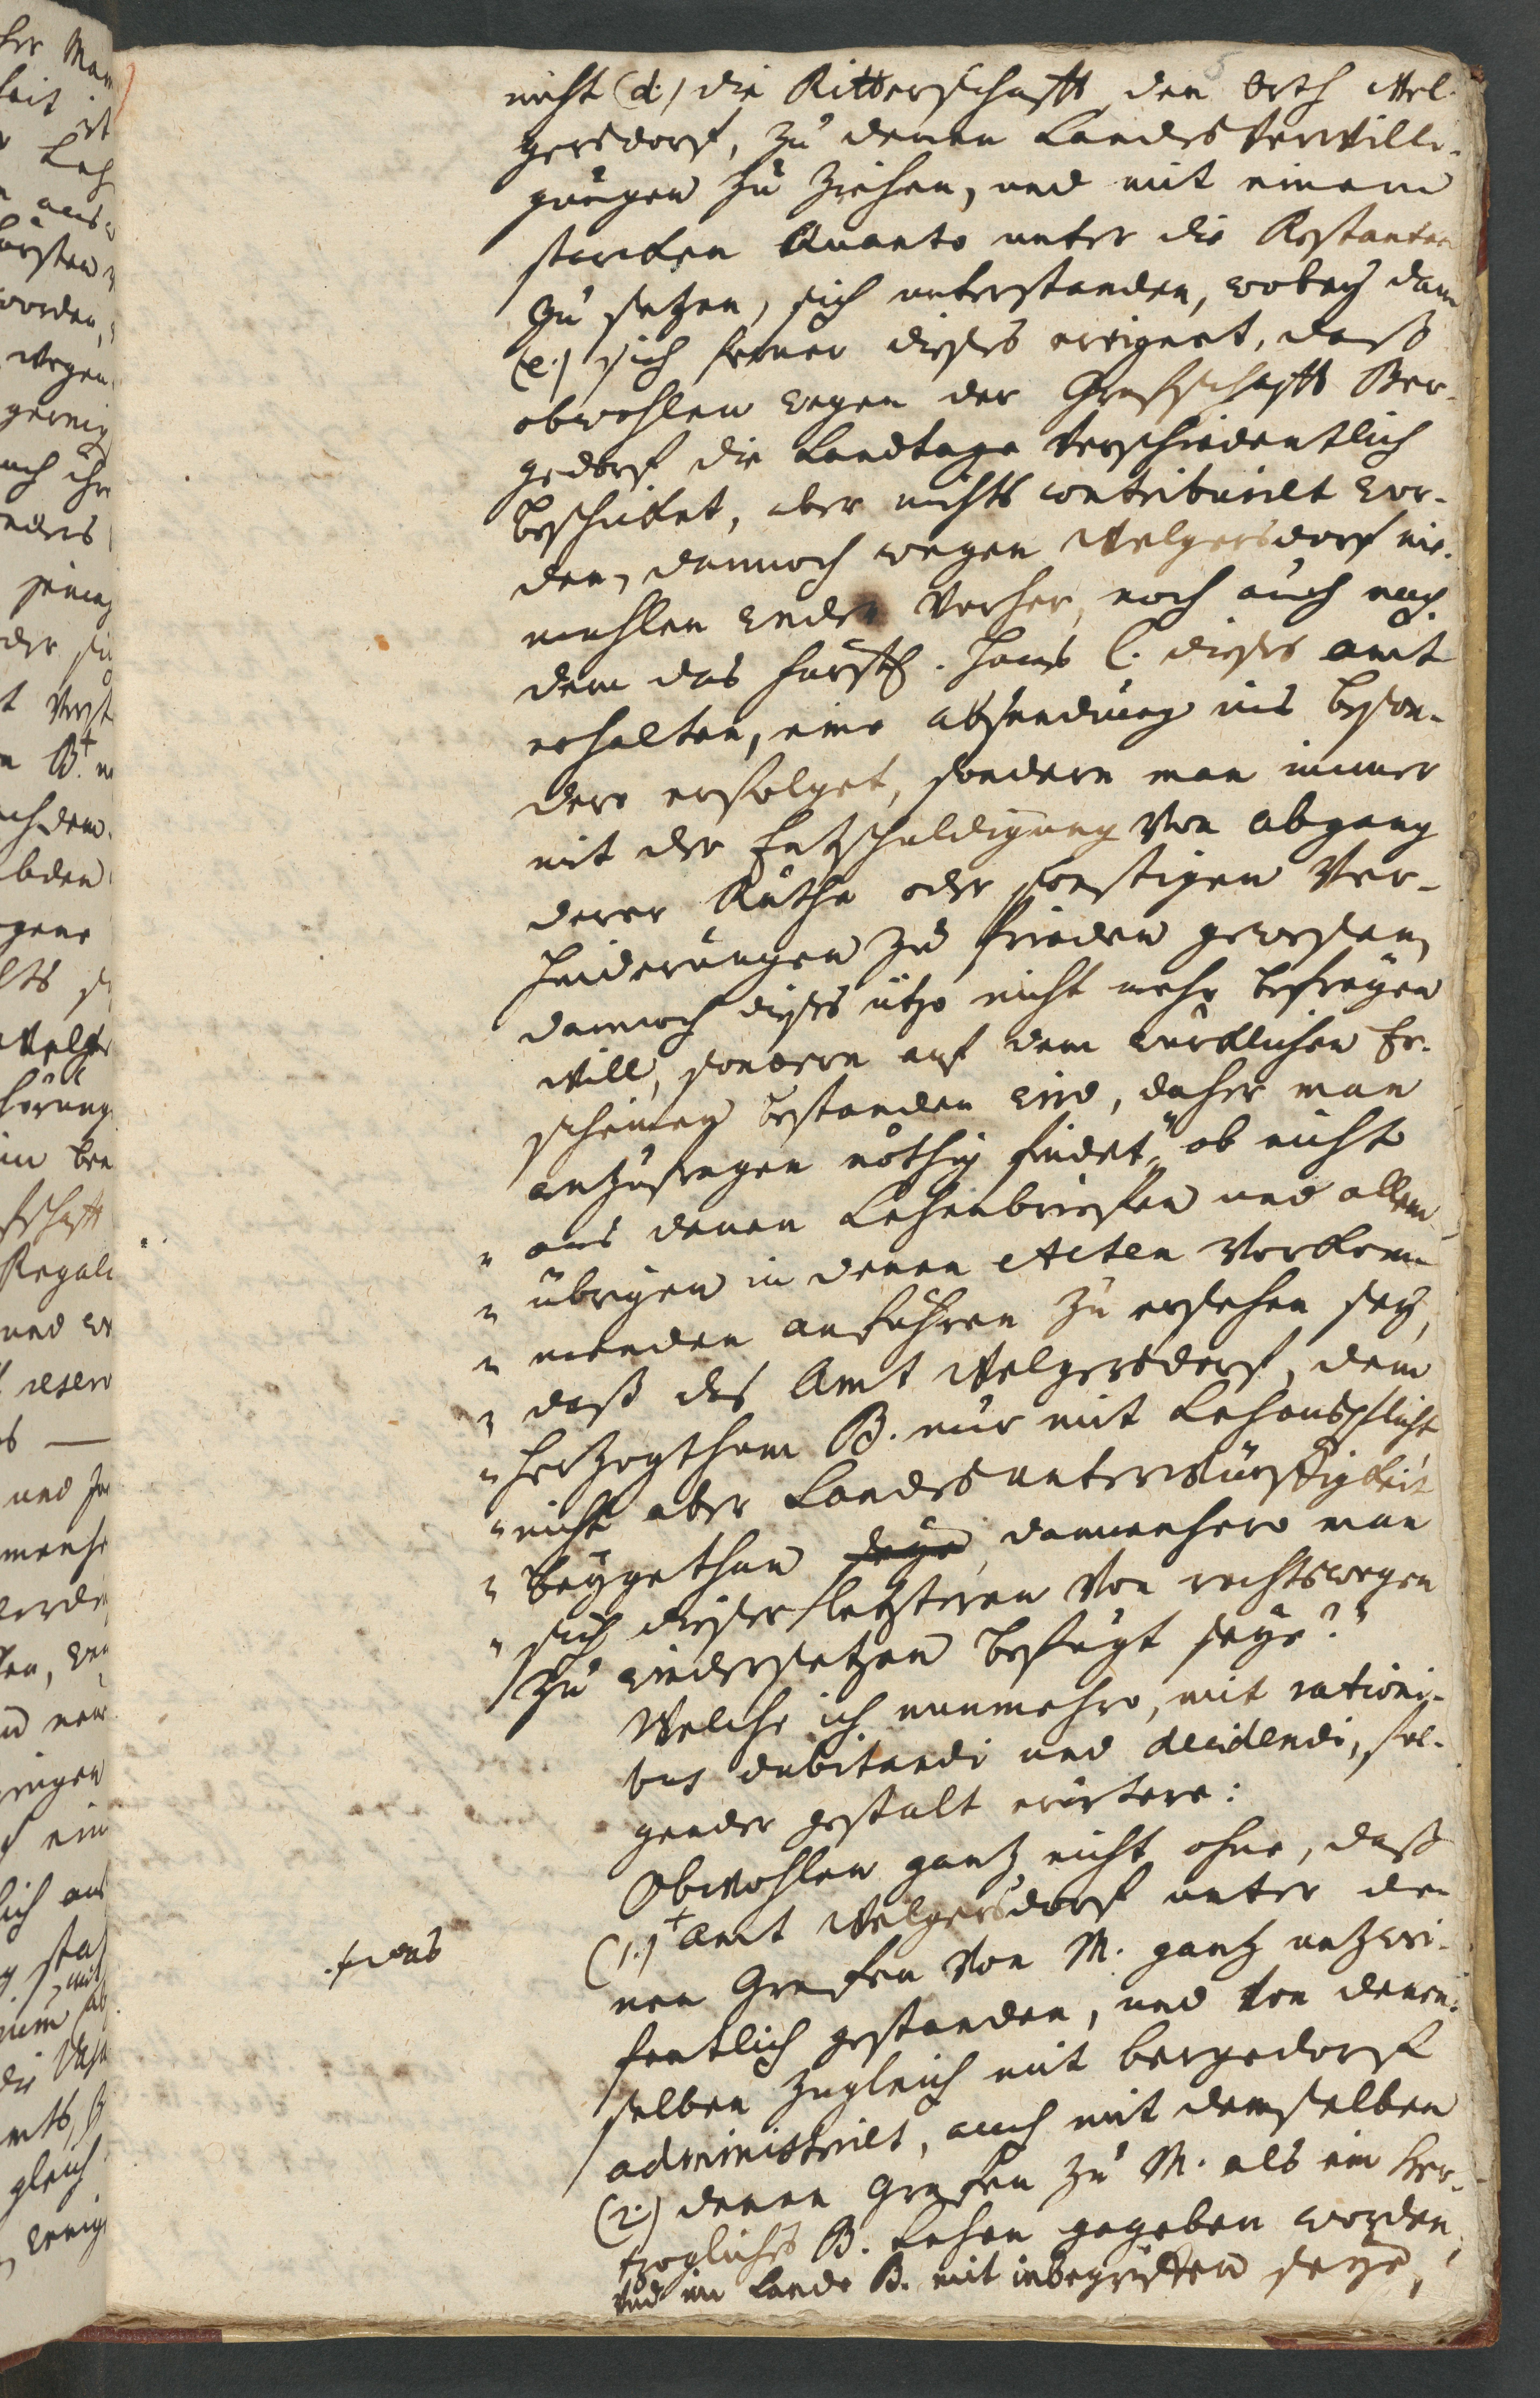 nicht (d.) die Ritterschafft den Orth Wel-
gersdorf, zu denen Landes Verwilli-
gungen zu ziehen, und mit einem
starcken Quanto unter die Restanten
zu setzen, sich unterstanden, wobey dann
(e.) sich ferner dieses ereignet, daß
obwohlen wegen der Graffschafft Ber-
gedorf die Landtage verschiedentlich
beschicket, aber nichts contribuirt wor-
den, dennoch wegen Welgersdorf nie-
mahlen weder vorher, noch auch nach-
dem das Fürstl. Haus C. dieses Amt
erhalten, eine Absendung ins beson-
dere erfolget, sondern man immer
mit der Entschuldigung von Abgang
derer Räthe oder sonstigen Ver-
hinderungen zu frieden gewesen,
dennoch dieses itzo nicht mehr
will, sondern auf dem würcklichen Er-
scheinen bestanden wird, daher man
anzufragen nöthig findet, „ob nicht
„ aus denen Lehenbriefen und allem
„ übrigen in denen Acten vorkom-
„ menden anführen zu ersehen sey,
„ daß das Amt Welgersdorf, dem
„ Herzogthum B. nur mit Lehenspflicht
„ nicht aber Landes unterwürffigkeit
„ beygethan seye, dannenhero man
„ sich dieser letzteren von rechtswegen
zu widersetzen befugt seye?“
Welche ich nunmehro, mit rationi-
bus dubitandi und decidendi, fol-
gender gestalt erörtere:
Obwohlen gantz nicht ohne, daß
(1.) + Amt Welgersdorf unter de-
+ das
nen Grafen von M. gantz unzwei-
fentlich gestanden, und von denen-
selben zugleich mit Bergedorf
administrirt, auch mit demselben
(2.) denen Grafen zu M. als ein Her-
tzogliches B. Lehen gegeben worden,
und im Lande B. mit inbegriffen seye,